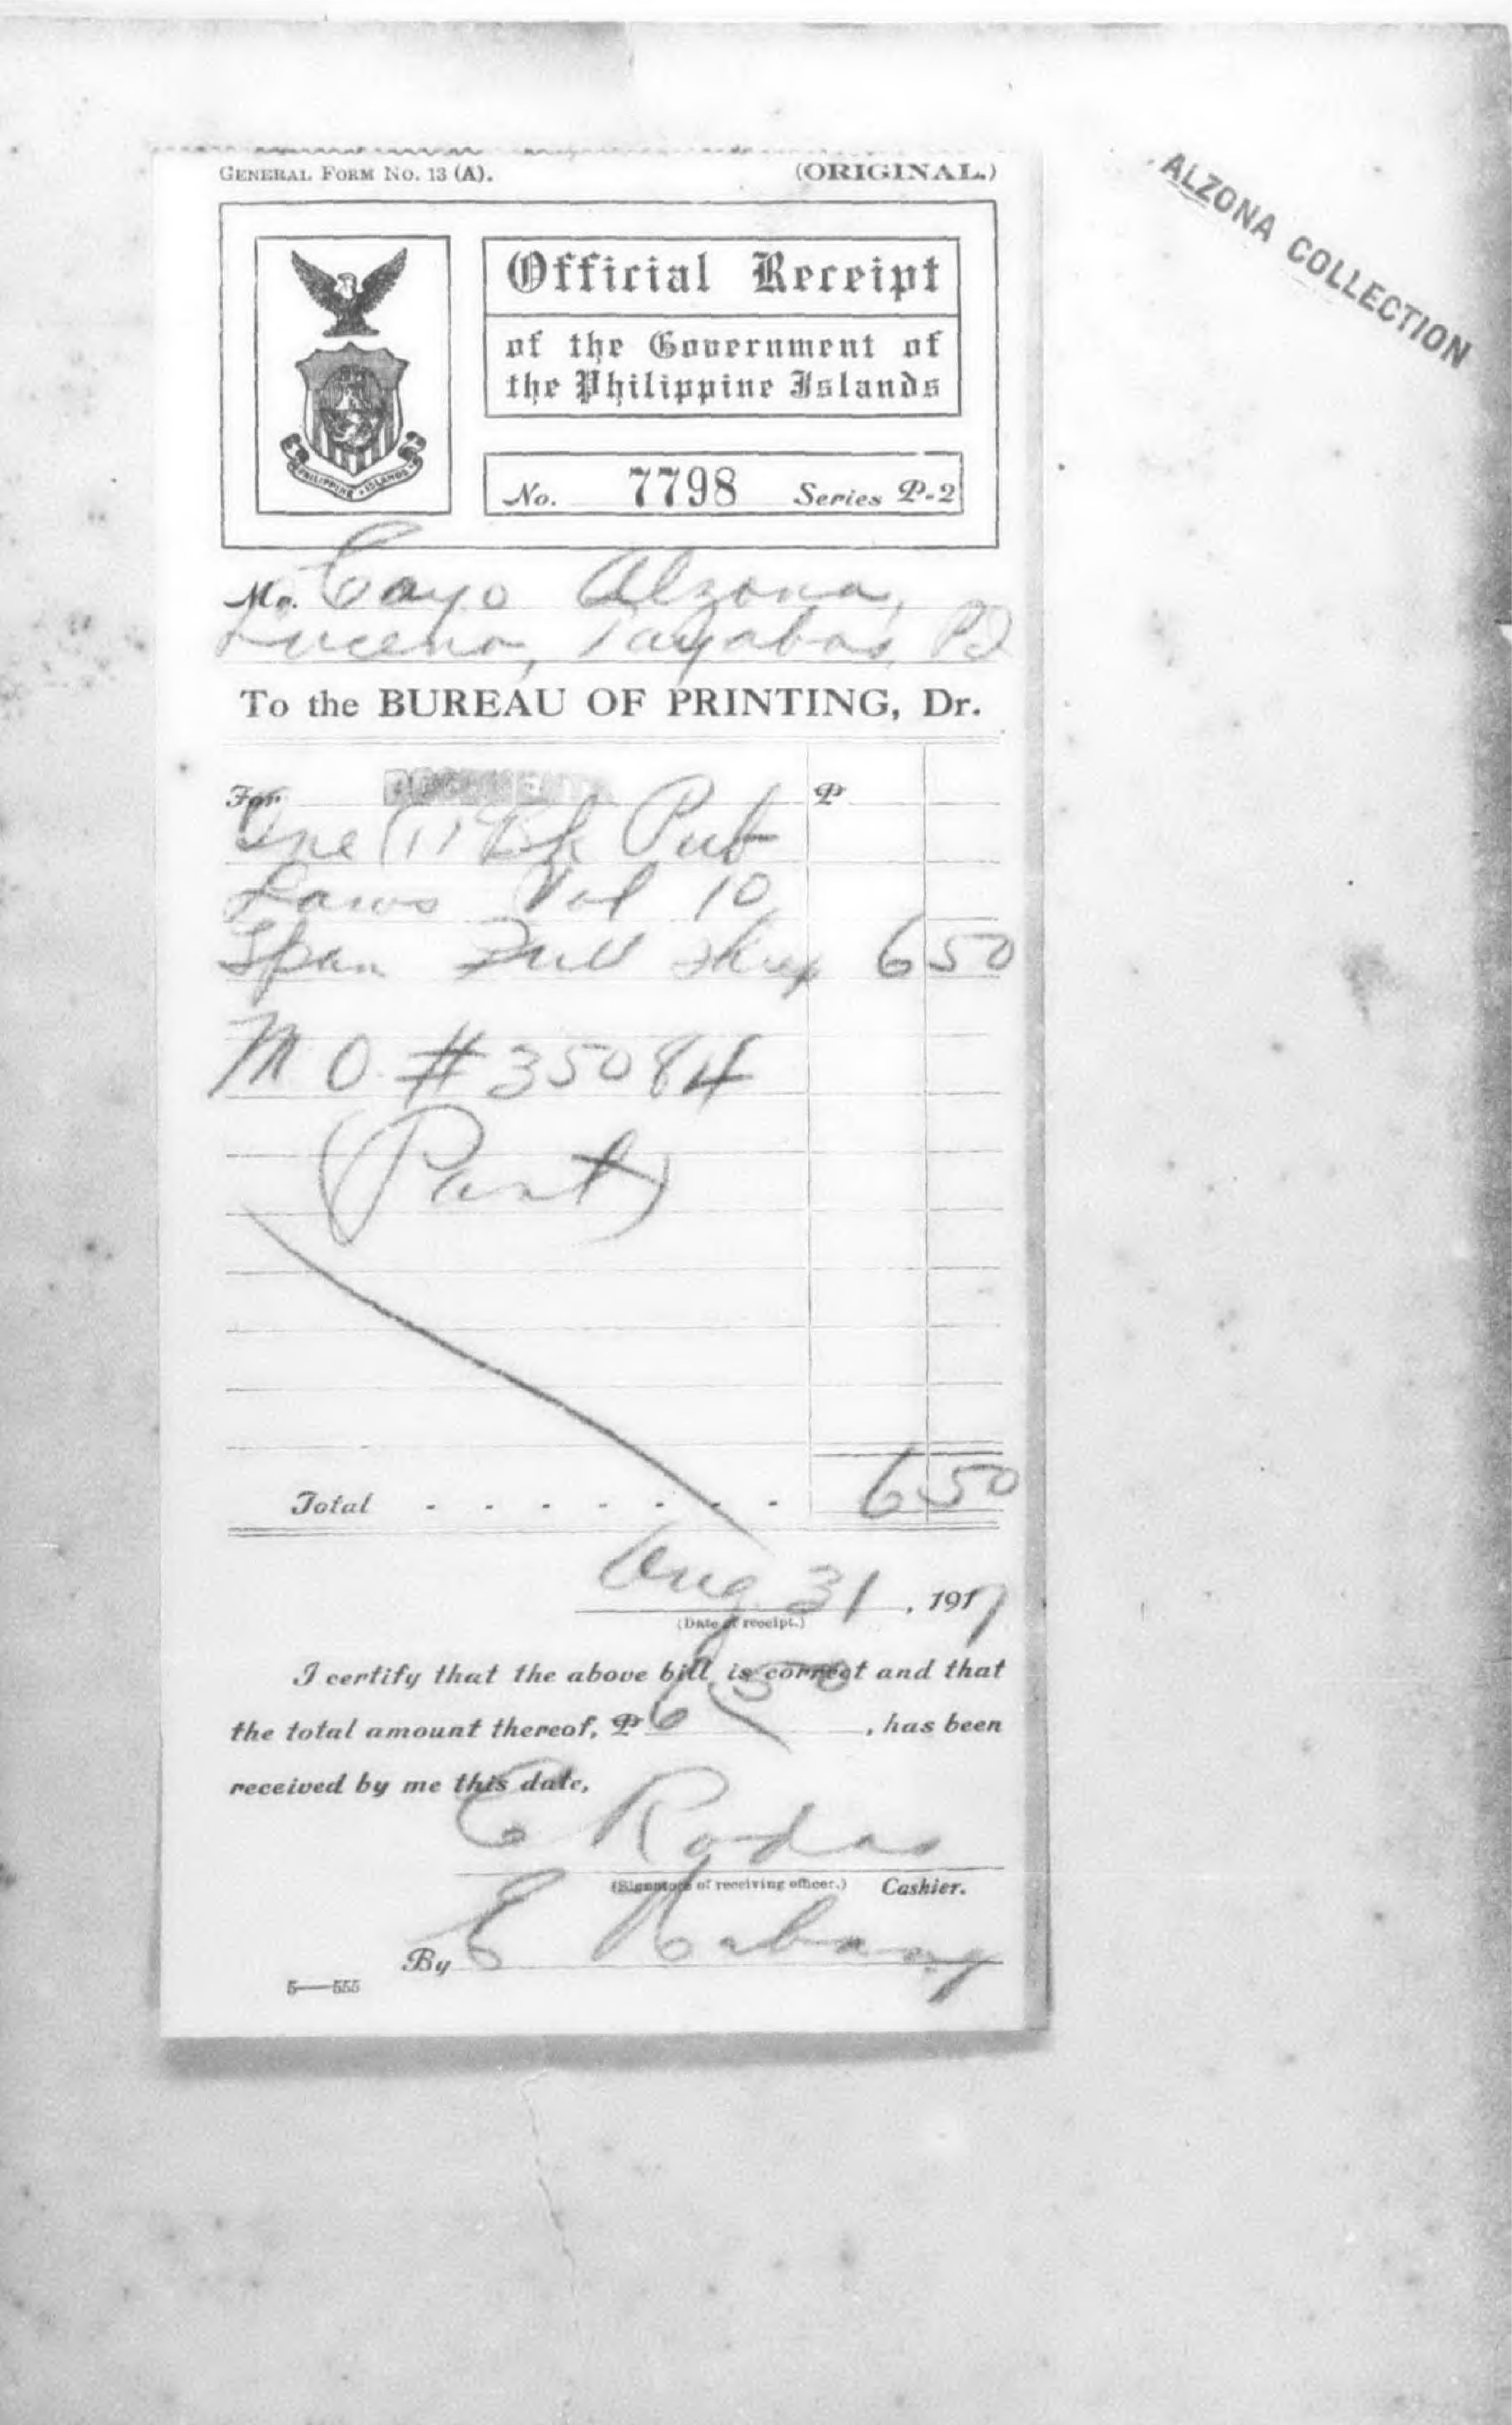 GENERAL FORM No. 13 (A).
(ORIGINAL.)
ALZONA COLLECTION
Official Receipt
of the Government of
the Philippine Islands
PHILIPPINE ISLANDS
No. 7798 Series P-2
Mr. Cayo Alzona,
Lucena, Tayabas, P.I.
To the BUREAU OF PRINTING, Dr.
DOCUMENTS
For ₱
One (1) Bk Pub
Laws Vol 10
Span Full Shep 6 50
M O. # 35084
(Part)
Total - - - - - - - 6 50
Aug. 31, 1917
(Date of receipt.)
I certify that the above bill is correct and that
the total amount thereof, ₱ 6 50, has been
received by me this date,
C Rodas
(Signature of receiving officer.) Cashier.
By E Kabang
5—555